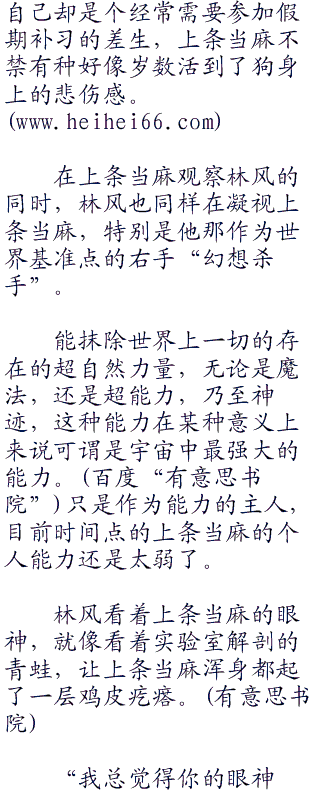 自己却是个经常需要参加假
期补习的差生，上条当麻不
禁有种好像岁数活到了狗身
上的悲伤感。
(www.heihei66.com)
在上条当麻观察林风的
同时，林风也同样在凝视上
条当麻，特别是他那作为世
界基准点的右手“幻想杀
手”。
能抹除世界上一切的存
在的超自然力量，无论是魔
法，还是超能力，乃至神
迹，这种能力在某种意义上
来说可谓是宇宙中最强大的
能力。(百度“有意思书
院”)只是作为能力的主人，
目前时间点的上条当麻的个
人能力还是太弱了。
林风看着上条当麻的眼
神，就像看着实验室解剖的
青蛙，让上条当麻浑身都起
了一层鸡皮疙瘩。(有意思书
院)
“我总觉得你的眼神